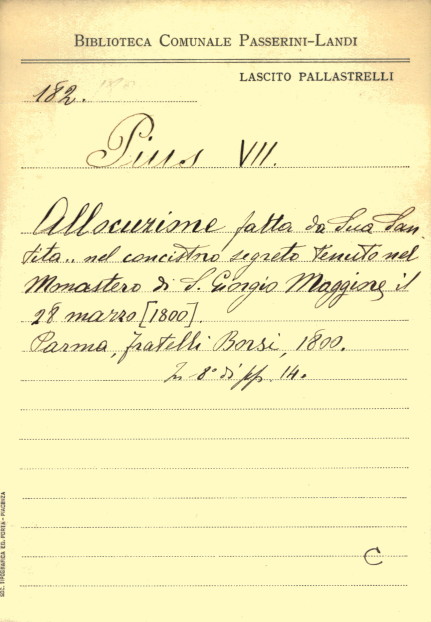 BIBLIOTECA COMUNALE PASSERINI-LANDI
LASCITO PALLASTRELLI
182.
Pius VII.
Allocuzione fatta da Sua San
tita.. nel concistro segreto tenuto nel
Monastero di S. Giorgio Maggiore il
28 marzo [1800].
Parma, fratelli Borsi, 1800.
In 8° di pp. 14.
C
SOC. TIPOGRAFICA ED. PORTA - PIACENZA